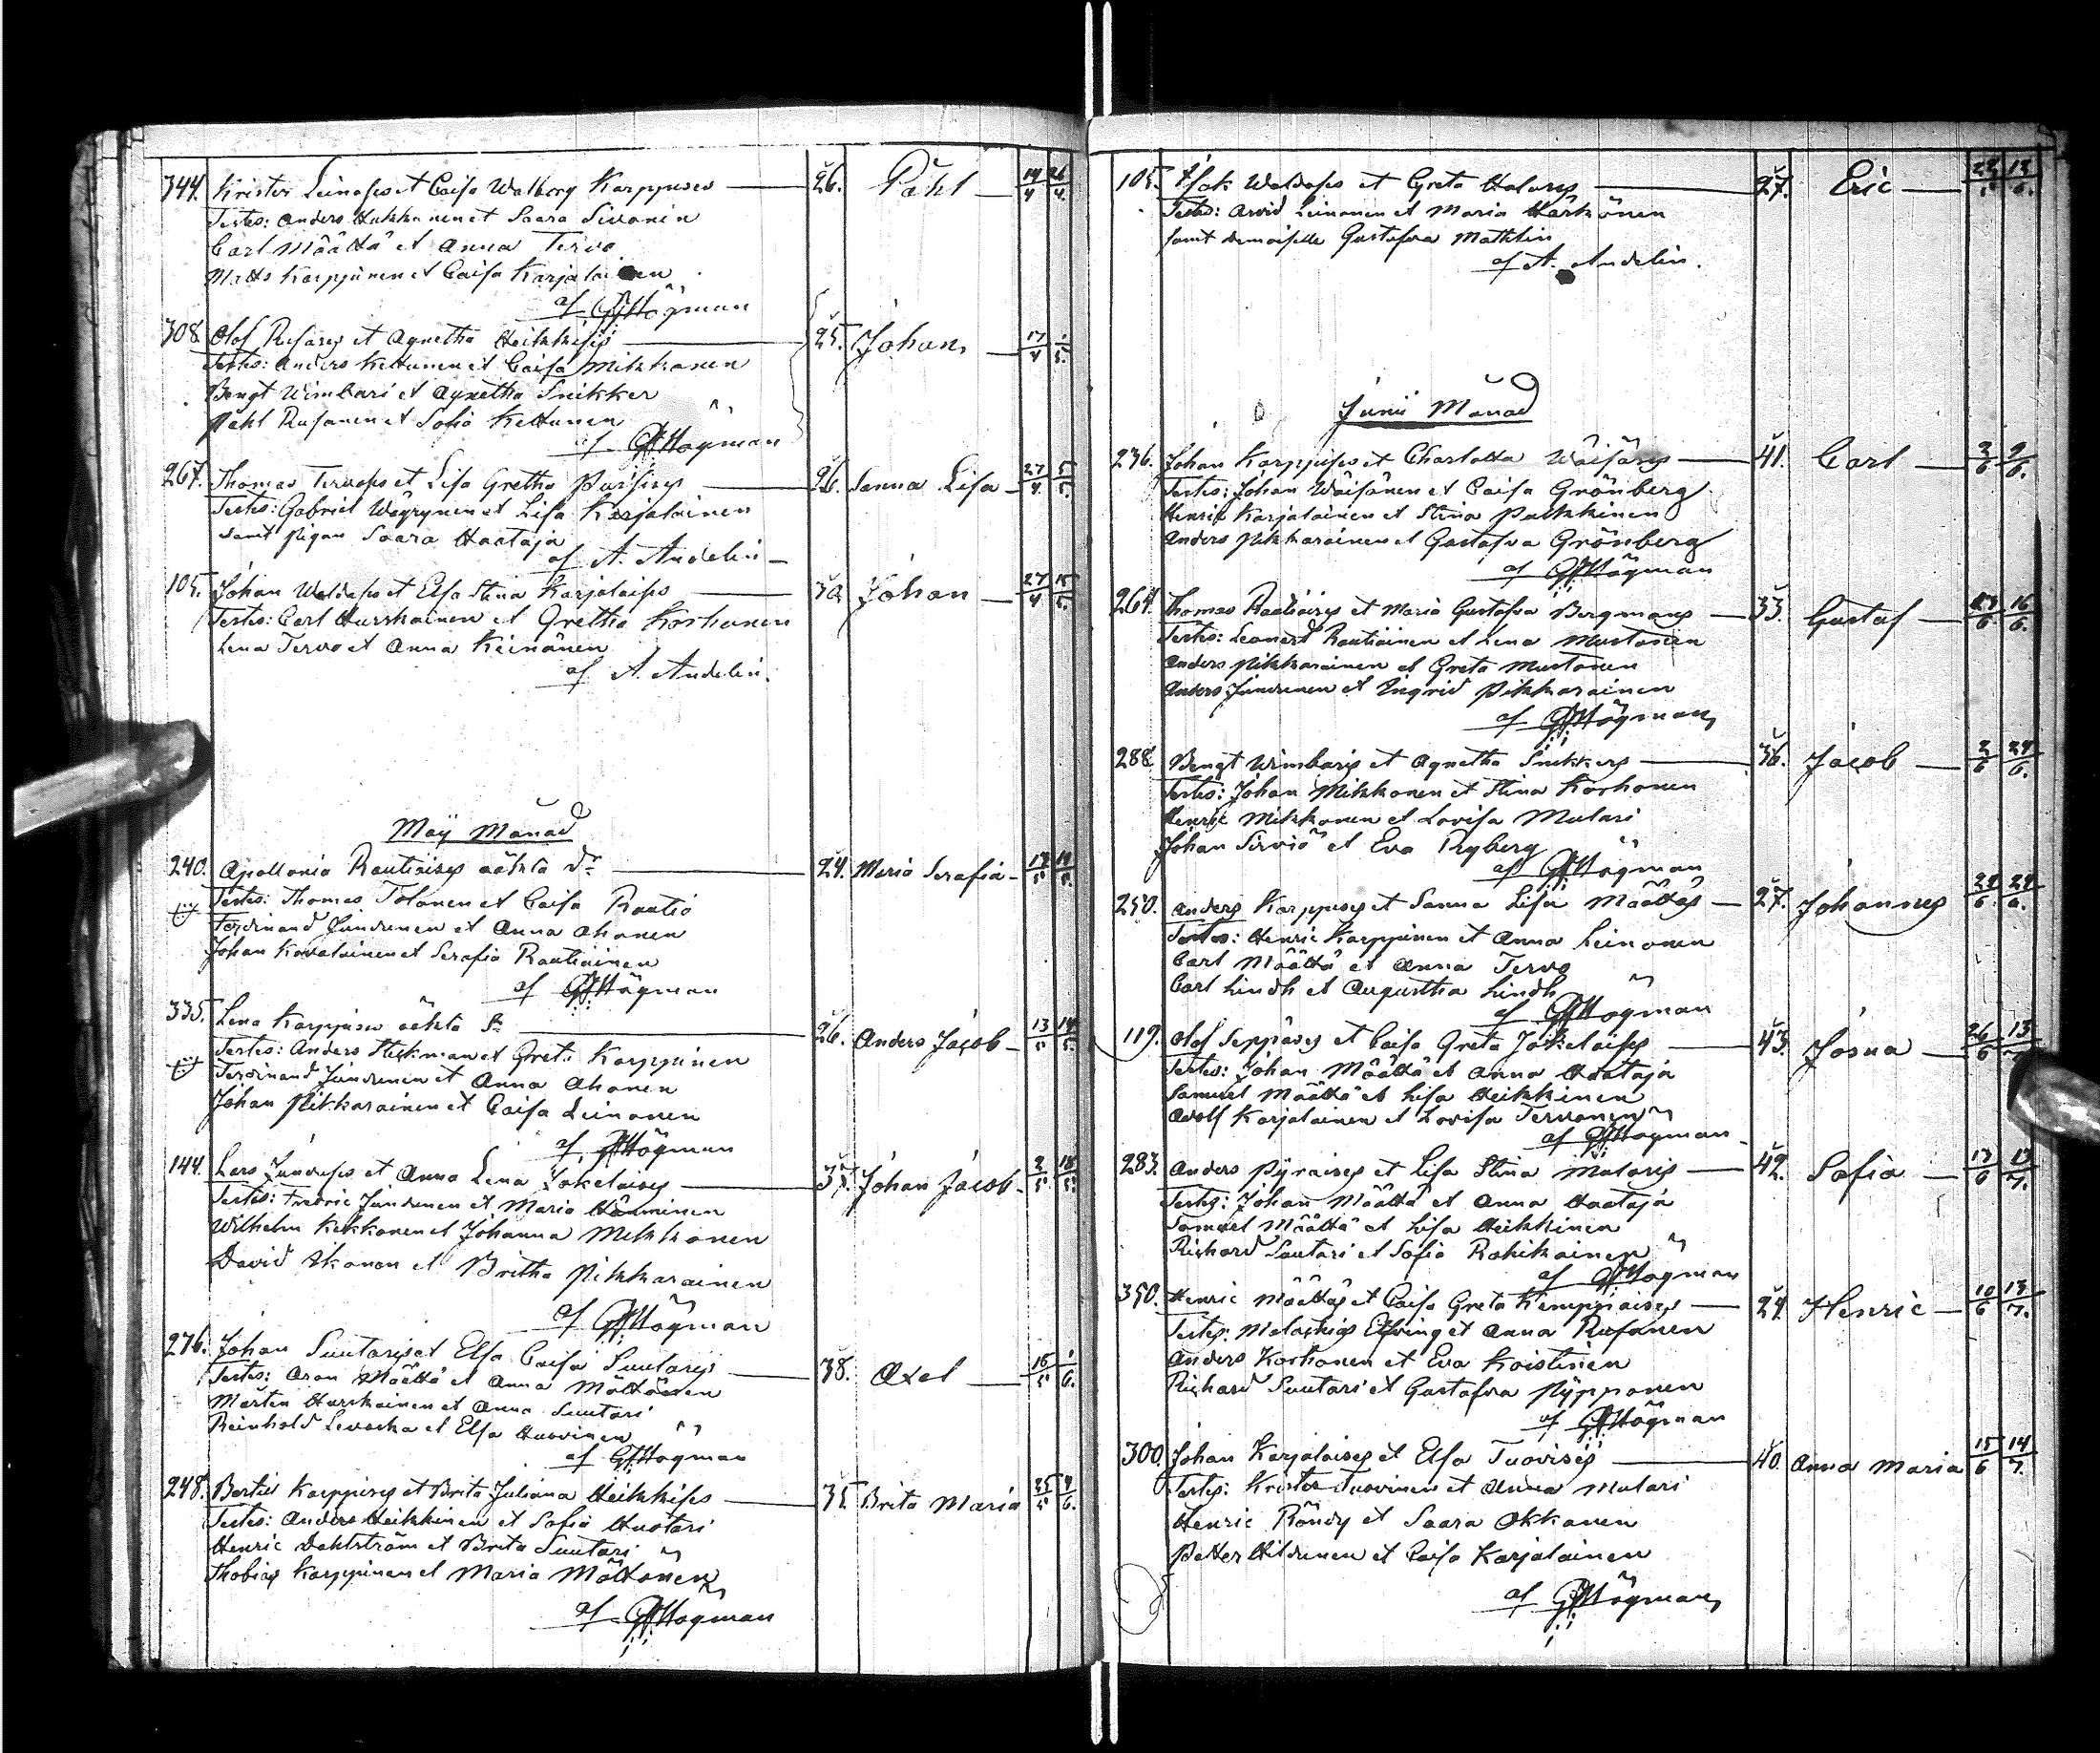 344. Krister Leinoses et Caisa Walborg Karppises — 26. Påhl — 19/4 26/4.
Testes: Anders Hukkanen et Saara Sivonin
Carl Määttä et Anna Tervo
Matts Karppinen et Caisa Karjalainen
af GFHögman
308. Olof Rusases et Agnetha Heikkises — 25. Johan, — 17/4 1/5.
Testes: Anders Kettunen et Caisa Mikkonen
Bengt Wimbari et Agnetha Snikker
Påhl Rusanen et Sofia Kettunen
af GFHögman
267. Thomas Tervoses et Lisa Gretha Parsises — 26. Sanna Lisa — 27/4 5/5.
Testes: Gabriel Wäyrynen et Lisa Karjalainen
samt pigan Saara Haataja
af A. Andelin —
105. Johan Waldases et Elsa Stina Karjalaises — 30. Johan — 27/4 15/5.
Testes: Carl Hurskainen et Gretha Korhonen
Lena Tervo et Anna Keinänen
af A. Andelin.
Maÿ Månad
240. Apollonia Rautiaises oäkta dr — 24. Maria Serafia — 14/5.
Testes: Thomas Tolonen et Caisa Rautio
Ferdinand Jundunen et Anna Ahonen
Johan Kovalainen et Serafia Rautiainen
af GFHögman
335. Lena Karppises oäkta Sn — 26. Anders Jacob — 13/5 14/5.
Testes: Anders Steckman et Greta Karppinen
Ferdinand Jundunen et Anna Ahonen
Johan Pikkarainen et Caisa Leinonen
af GFHögman
144. Lars Junduses et Anna Lena Jokelaises — 37. Johan Jacob — 2/5 18/5.
Testes: Fredric Jundunen et Maria Hänninen
Wilhelm Kekkonen et Johanna Mikkonen
David Ikonen et Britha Pikkarainen
af GFHögman
276. Johan Suutarises et Elsa Caisa Suutarises — 38. Axel — 16/5 1/6.
Testes: Aron Määttä et Anna Möttönen
Mårten Hurskainen et Anna Suutari
Reinhold Levoska et Elsa Huovinen
af GFHögman
248. Bertil Karppises et Brita Juliana Heikkises — 35. Brita Maria 25/5 9/6.
Testes: Anders Heikkinen et Sofia Huotari
Henric Dahlström et Brita Suutari
Thobias Karppinen et Maria Möttönen
af GFHögman
105. Isak Waldases et Greta Halones — 27. Eric — 22/5 12/6.
Testes: Arvid Leinonen et Maria Härkönen
samt demoiselle Gustafva Mathlin
af A. Andelin.
Junii Månad
236. Johan Karppises et Charlotta Wäisäses — 41. Carl — 3/6 9/6.
Testes: Johan Wäisänen et Caisa Grönberg
Henric Karjalainen et Stina Pulkkinen
Anders Pikkarainen et Gustafva Grönberg
af GFHögman
264. Thomas Rautiaises et Maria Gustafva Bergmans — 33. Gustaf — 16/6.
Testes: Leonard Rautiainen et Lena Mustonen
Anders Pikkarainen et Greta Mustonen
Anders Jundunen et Ingrid Pikkarainen
af GFHögman,
288. Bengt Wimbaris et Agnetha Snikkers — 36. Jacob — 2/6 24/6.
Testes: Johan Mikkonen et Stina Korhonen
Henric Mikkonen et Lovisa Mulari
Johan Serviö et Eva Ryberg
af GFHögman
250. Anders Karppises et Sanna Lisa Määttäs — 27. Johannes 24/6. 24/6.
Testes: Henric Karppinen et Anna Leinonen
Carl Määttä et Anna Tervo
Carl Lindh et Augustha Lindh
af GFHögman
119. Olof Seppäses et Caisa Greta Jokelaises — 43. Josua — 26/6 13/7.
Testes: Johan Määttä et Anna Haataja
Samuel Määttä et Lisa Heikkinen
Adolf Karjalainen et Lovisa Tervonen
af GFHögman
283. Anders Pyraises et Lisa Stina Mularis — 42. Sofia — 13/6 13/7.
Testes: Johan Määttä et Anna Haataja
Samuel Määttä et Lisa Heikkinen
Richard Suutari et Sofia Rahikainen
af GFHögman
350. Henric Määttäs et Caisa Greta Kemppiaises — 24. Henric — 10/6 13/7.
Testes: Malachias Elfving et Anna Rusanen
Anders Korhonen et Eva Koistinen
Richard Suutari et Gustafva Pÿpponen
af GFHögman
300. Johan Karjalaises et Elsa Tuovises — 40. Anna Maria 15/6 14/7.
Testes: Krister Tuovinen et Anna Mulari
Henric Röndy et Saara Okkonen
Petter Hildunen et Caisa Karjalainen
af GFHögman,